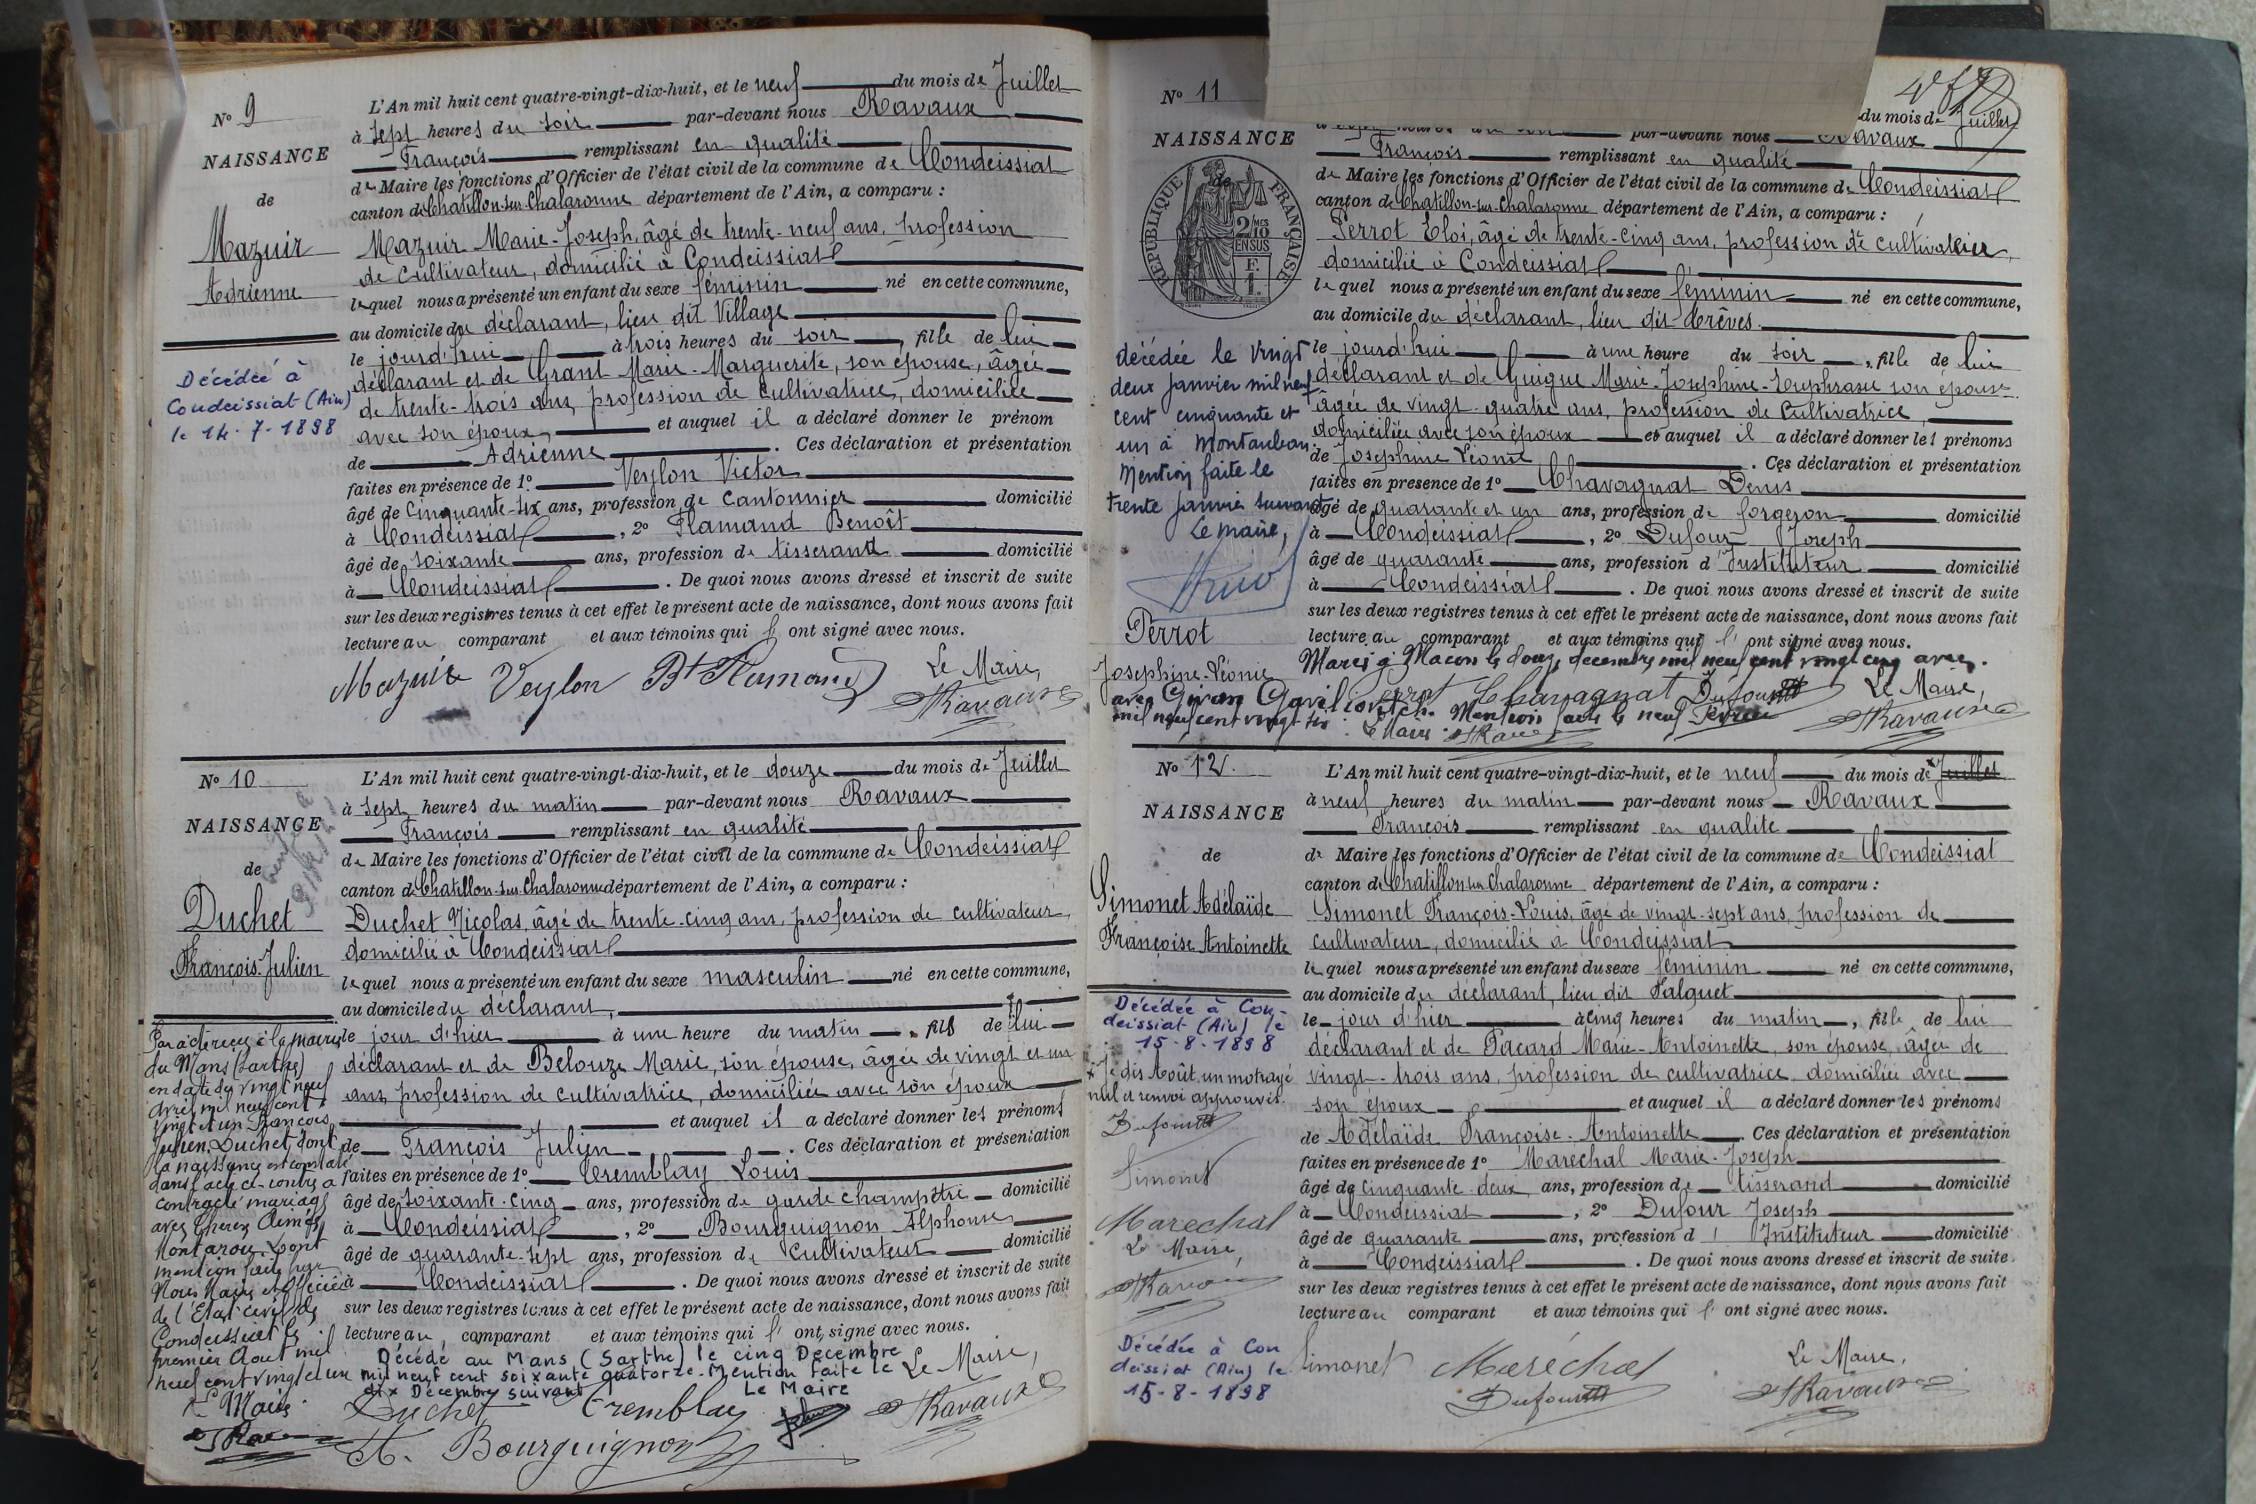 N° 9
NAISSANCE
de
Mazuir
Adrienne
Décédée à
Condeissiat (Ain)
le 14.7.1898
L'An mil huit cent quatre-vingt-dix-huit, et le neuf du mois de Juillet
à sept heures du soir par-devant nous Ravaux
François remplissant en qualité
de Maire les fonctions d'Officier de l'état civil de la commune de Condeissiat
canton de Chatillon-sur-Chalaronne département de l'Ain, a comparu :
Mazuir Marie-Joseph, âgé de trente-neuf ans, profession
de cultivateur, domicilié à Condeissiat
lequel nous a présenté un enfant du sexe féminin né en cette commune,
au domicile du déclarant, lieu dit Village
le jourd'hui à trois heures du soir, fille de lui
déclarant et de Grant Marie-Marguerite, son épouse, âgée
de trente-trois ans, profession de cultivatrice, domiciliée
avec son époux, et auquel il a déclaré donner le prénom
de Adrienne. Ces déclaration et présentation
faites en présence de 1° Veylon Victor
âgé de cinquante-six ans, profession de cantonnier domicilié
à Condeissiat, 2° Flamand Benoît
âgé de soixante ans, profession de tisserand domicilié
à Condeissiat. De quoi nous avons dressé et inscrit de suite
sur les deux registres tenus à cet effet le présent acte de naissance, dont nous avons fait
lecture au comparant et aux témoins qui l'ont signé avec nous.
Mazuir Veylon Bt Flamand Le Maire,
Ravaux
N° 10
NAISSANCE
de
Duchet
François-Julien
Par acte reçu à la mairie
du Mans (Sarthe)
en date du vingt neuf
avril mil neuf cent
vingt et un François
Julien Duchet, dont
la naissance est constatée
dans l'acte ci-contre a
contracté mariage
avec
Montarou. Dont
mention faite par
Nous Maire et Officier
de l'Etat civil de
Condeissiat le
premier Aout mil
neuf cent vingt et un
Le Maire
Ravaux
L'An mil huit cent quatre-vingt-dix-huit, et le douze du mois de Juillet
à sept heures du matin par-devant nous Ravaux
François remplissant en qualité
de Maire les fonctions d'Officier de l'état civil de la commune de Condeissiat
canton de Chatillon-sur-Chalaronne département de l'Ain, a comparu :
Duchet Nicolas, âgé de trente-cinq ans, profession de cultivateur,
domicilié à Condeissiat
lequel nous a présenté un enfant du sexe masculin né en cette commune,
au domicile du déclarant,
le jour d'hier à une heure du matin, fils de lui
déclarant et de Belouze Marie, son épouse, âgée de vingt et un
ans, profession de cultivatrice, domiciliée avec son époux
et auquel il a déclaré donner les prénoms
de François Julien. Ces déclaration et présentation
faites en présence de 1° Tremblay Louis
âgé de soixante-cinq ans, profession de garde champêtre domicilié
à Condeissiat, 2° Bourguignon Alphonse
âgé de quarante-sept ans, profession de cultivateur domicilié
à Condeissiat. De quoi nous avons dressé et inscrit de suite
sur les deux registres tenus à cet effet le présent acte de naissance, dont nous avons fait
lecture au comparant et aux témoins qui l'ont signé avec nous.
Décédé au Mans (Sarthe) le cinq Decembre
mil neuf cent soixante quatorze. Mention faite le
dix Décembre suivant Le Maire
Le Maire,
Duchet Tremblay Ravaux
A. Bourguignon
N° 11
NAISSANCE
de
REPUBLIQUE FRANÇAISE
2/10 MES
EN SUS
F.
1.
décédée le vingt
deux janvier mil neuf
cent cinquante et
un à Montauban
Mention faite le
trente janvier suivant
Le maire,
Perrot
Josephine-Léonie
du mois de Juillet
par-devant nous Ravaux
François remplissant en qualité
de Maire les fonctions d'Officier de l'état civil de la commune de Condeissiat
canton de Chatillon-sur-Chalaronne département de l'Ain, a comparu :
Perrot Eloi, âgé de trente-cinq ans, profession de cultivateur,
domicilié à Condeissiat
lequel nous a présenté un enfant du sexe féminin né en cette commune,
au domicile du déclarant, lieu dit Crêves.
le jourd'hui à une heure du soir, fille de lui
déclarant et de Guigue Marie-Josephine-Euphrasie son épouse
âgée de vingt-quatre ans, profession de cultivatrice,
domiciliée avec son époux et auquel il a déclaré donner les prénoms
de Josephine Léonie. Ces déclaration et présentation
faites en présence de 1° Chavagnat Denis
âgé de quarante et un ans, profession de forgeron domicilié
à Condeissiat, 2° Dufour Joseph
âgé de quarante ans, profession d'Instituteur domicilié
à Condeissiat. De quoi nous avons dressé et inscrit de suite
sur les deux registres tenus à cet effet le présent acte de naissance, dont nous avons fait
lecture au comparant et aux témoins qui l'ont signé avec nous.
Mariée à Macon le douze decembre mil neuf cent vingt cinq avec
avec Givan Gavrilovitch. Mention faite le neuf Février
mil neuf cent vingt six. Le Maire : Ravaux
Perrot Chavagnat Dufour Le Maire,
Ravaux
N° 12
NAISSANCE
de
Simonet Adélaïde
Françoise Antoinette
Décédée à Con-
deissiat (Ain) le
15.8.1898
× dix Août, un mot rayé
nul et renvoi approuvés.
Dufour
Simonet
Marechal
Le Maire,
Ravaux
Décédée à Con
deissiat (Ain) le
15-8-1898
L'An mil huit cent quatre-vingt-dix-huit, et le neuf du mois de × Juillet
à neuf heures du matin par-devant nous Ravaux
François remplissant en qualité
de Maire les fonctions d'Officier de l'état civil de la commune de Condeissiat
canton de Chatillon-sur-Chalaronne département de l'Ain, a comparu :
Simonet François-Louis, âgé de vingt-sept ans, profession de
cultivateur, domicilié à Condeissiat
lequel nous a présenté un enfant du sexe féminin né en cette commune,
au domicile du déclarant, lieu dit Falquet
le jour d'hier à cinq heures du matin, fille de lui
déclarant et de Pacard Marie-Antoinette, son épouse, âgée de
vingt-trois ans, profession de cultivatrice, domiciliée avec
son époux et auquel il a déclaré donner les prénoms
de Adélaïde Françoise-Antoinette. Ces déclaration et présentation
faites en présence de 1° Maréchal Marie-Joseph
âgé de cinquante-deux ans, profession de tisserand domicilié
à Condeissiat, 2° Dufour Joseph
âgé de quarante ans, profession d'Instituteur domicilié
à Condeissiat. De quoi nous avons dressé et inscrit de suite
sur les deux registres tenus à cet effet le présent acte de naissance, dont nous avons fait
lecture au comparant et aux témoins qui l'ont signé avec nous.
Simonet Maréchal Le Maire,
Dufour Ravaux